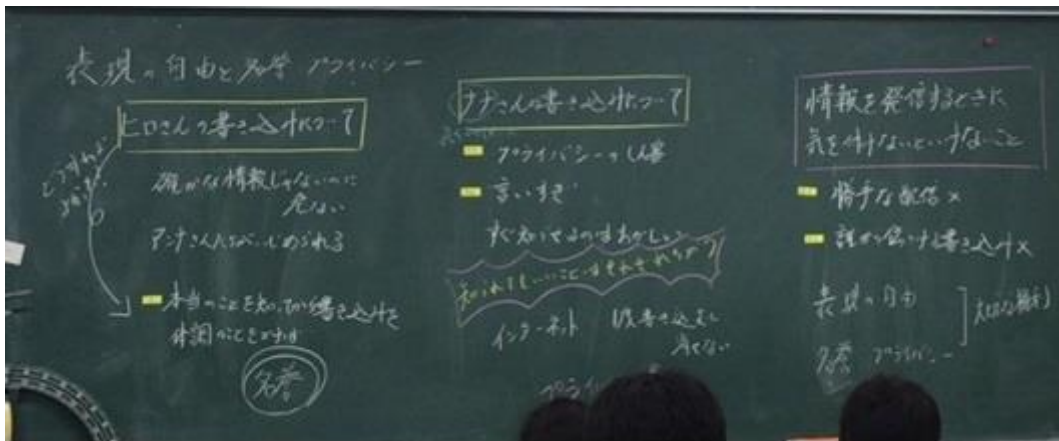 表現の自由と名誉 プライバシー
ヒロさんの書き込みについて
どうすれば
確かな情報じゃないのに
危ない
アンナさんたちがいじめられる
本当のことを知ってから書き込みを
体調のことを
名誉
ナナさんの書き込みについて
プライバシーの
言いすぎ
知らせるのはおかしい
知られてもいいことはそれぞれちがう
インターネット 一度書き込むと
消せない
情報を発信するときに
気を付けないといけないこと
勝手な配信×
誰かを傷つける書き込み×
表現の自由
名誉 プライバシー
大切な権利